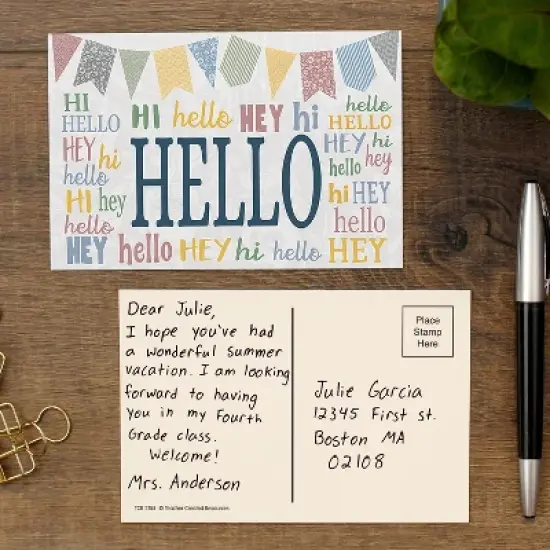 HI
HELLO
HI hello HEY hi
hello
HELLO
HEY
hi
hello
HELLO
HEY
hi
hello
hey
HI hey
hello
hi HEY
hello
HEY hello HEY hi hello HEY
Dear Julie,
I hope you've had
a wonderful Summer
vacation. I am looking
forward to having
you in my Fourth
Grade class.
Welcome!
Mrs. Anderson
Place
Stamp
Here
Julie Garcia
12345 First st.
Boston MA
02108
© Teacher Created Resources